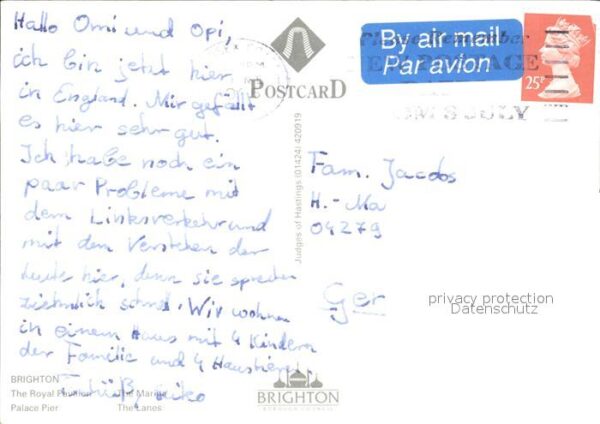 Hallo Omi und Opi,
ich bin jetzt hier
in England. Mir gefällt
es hier sehr gut.
Ich habe noch ein
paar Probleme mit
dem Linksverkehr und
mit dem Verstehen der
Leute hier, denn sie sprechen
ziehmlich schnell. Wir wohnen
in einem Haus mit 4 Kindern
der Familie und 4 Haustieren.
Tschüß,
BRIGHTON
The Royal Pavilion The Marina
Palace Pier The Lanes
POSTCARD
Judges of Hastings (01424) 420919
By air mail
Par avion
Please remember
JULY
25P
Fam. Jacobs
H.-Ma
04279
Ger
privacy protection
Datenschutz
BRIGHTON
BOROUGH COUNCIL